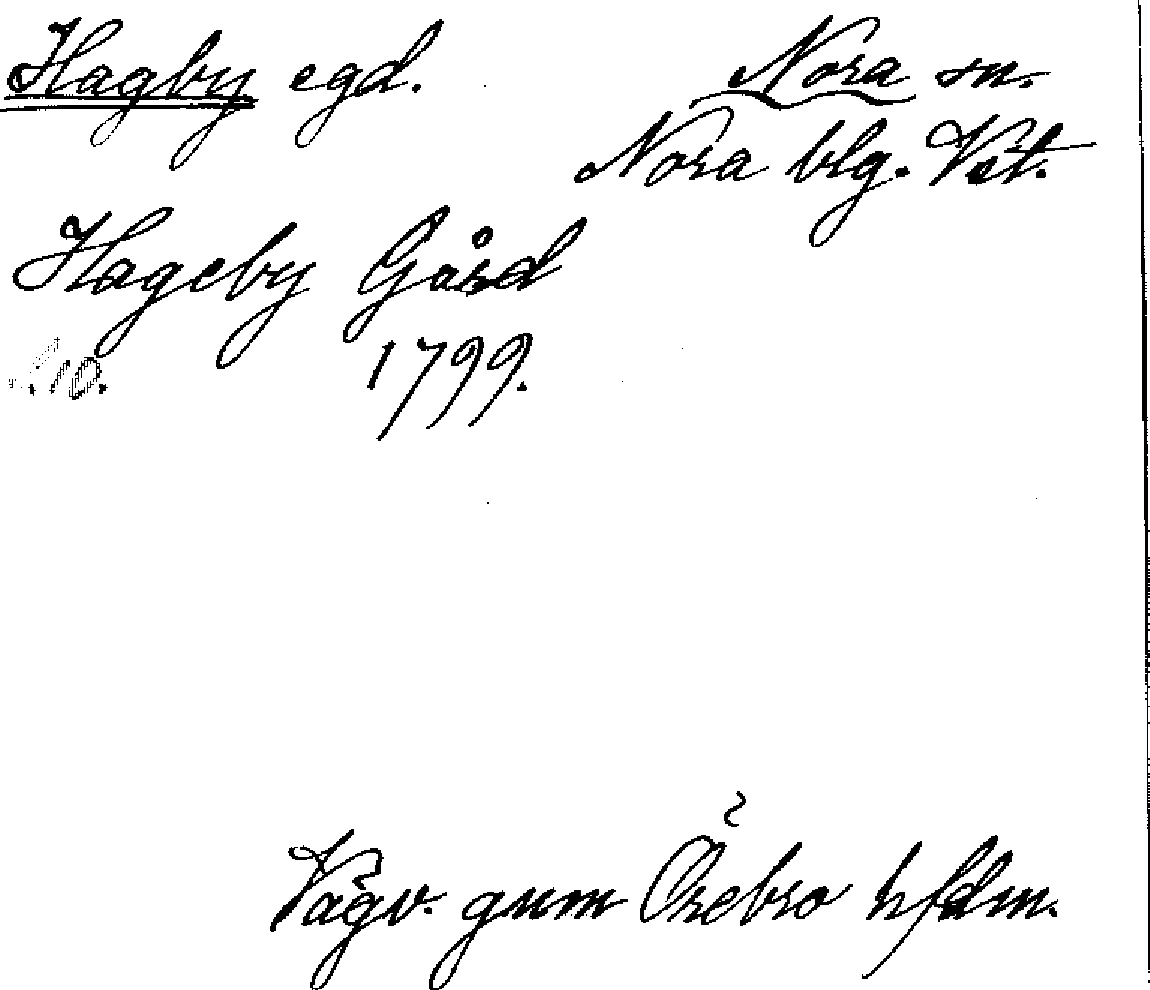 Hagby egd. Nora sn.
Nora blg. Vstl.
Hageby Gård
1799.
Vägv. gnm Örebro hfdm.